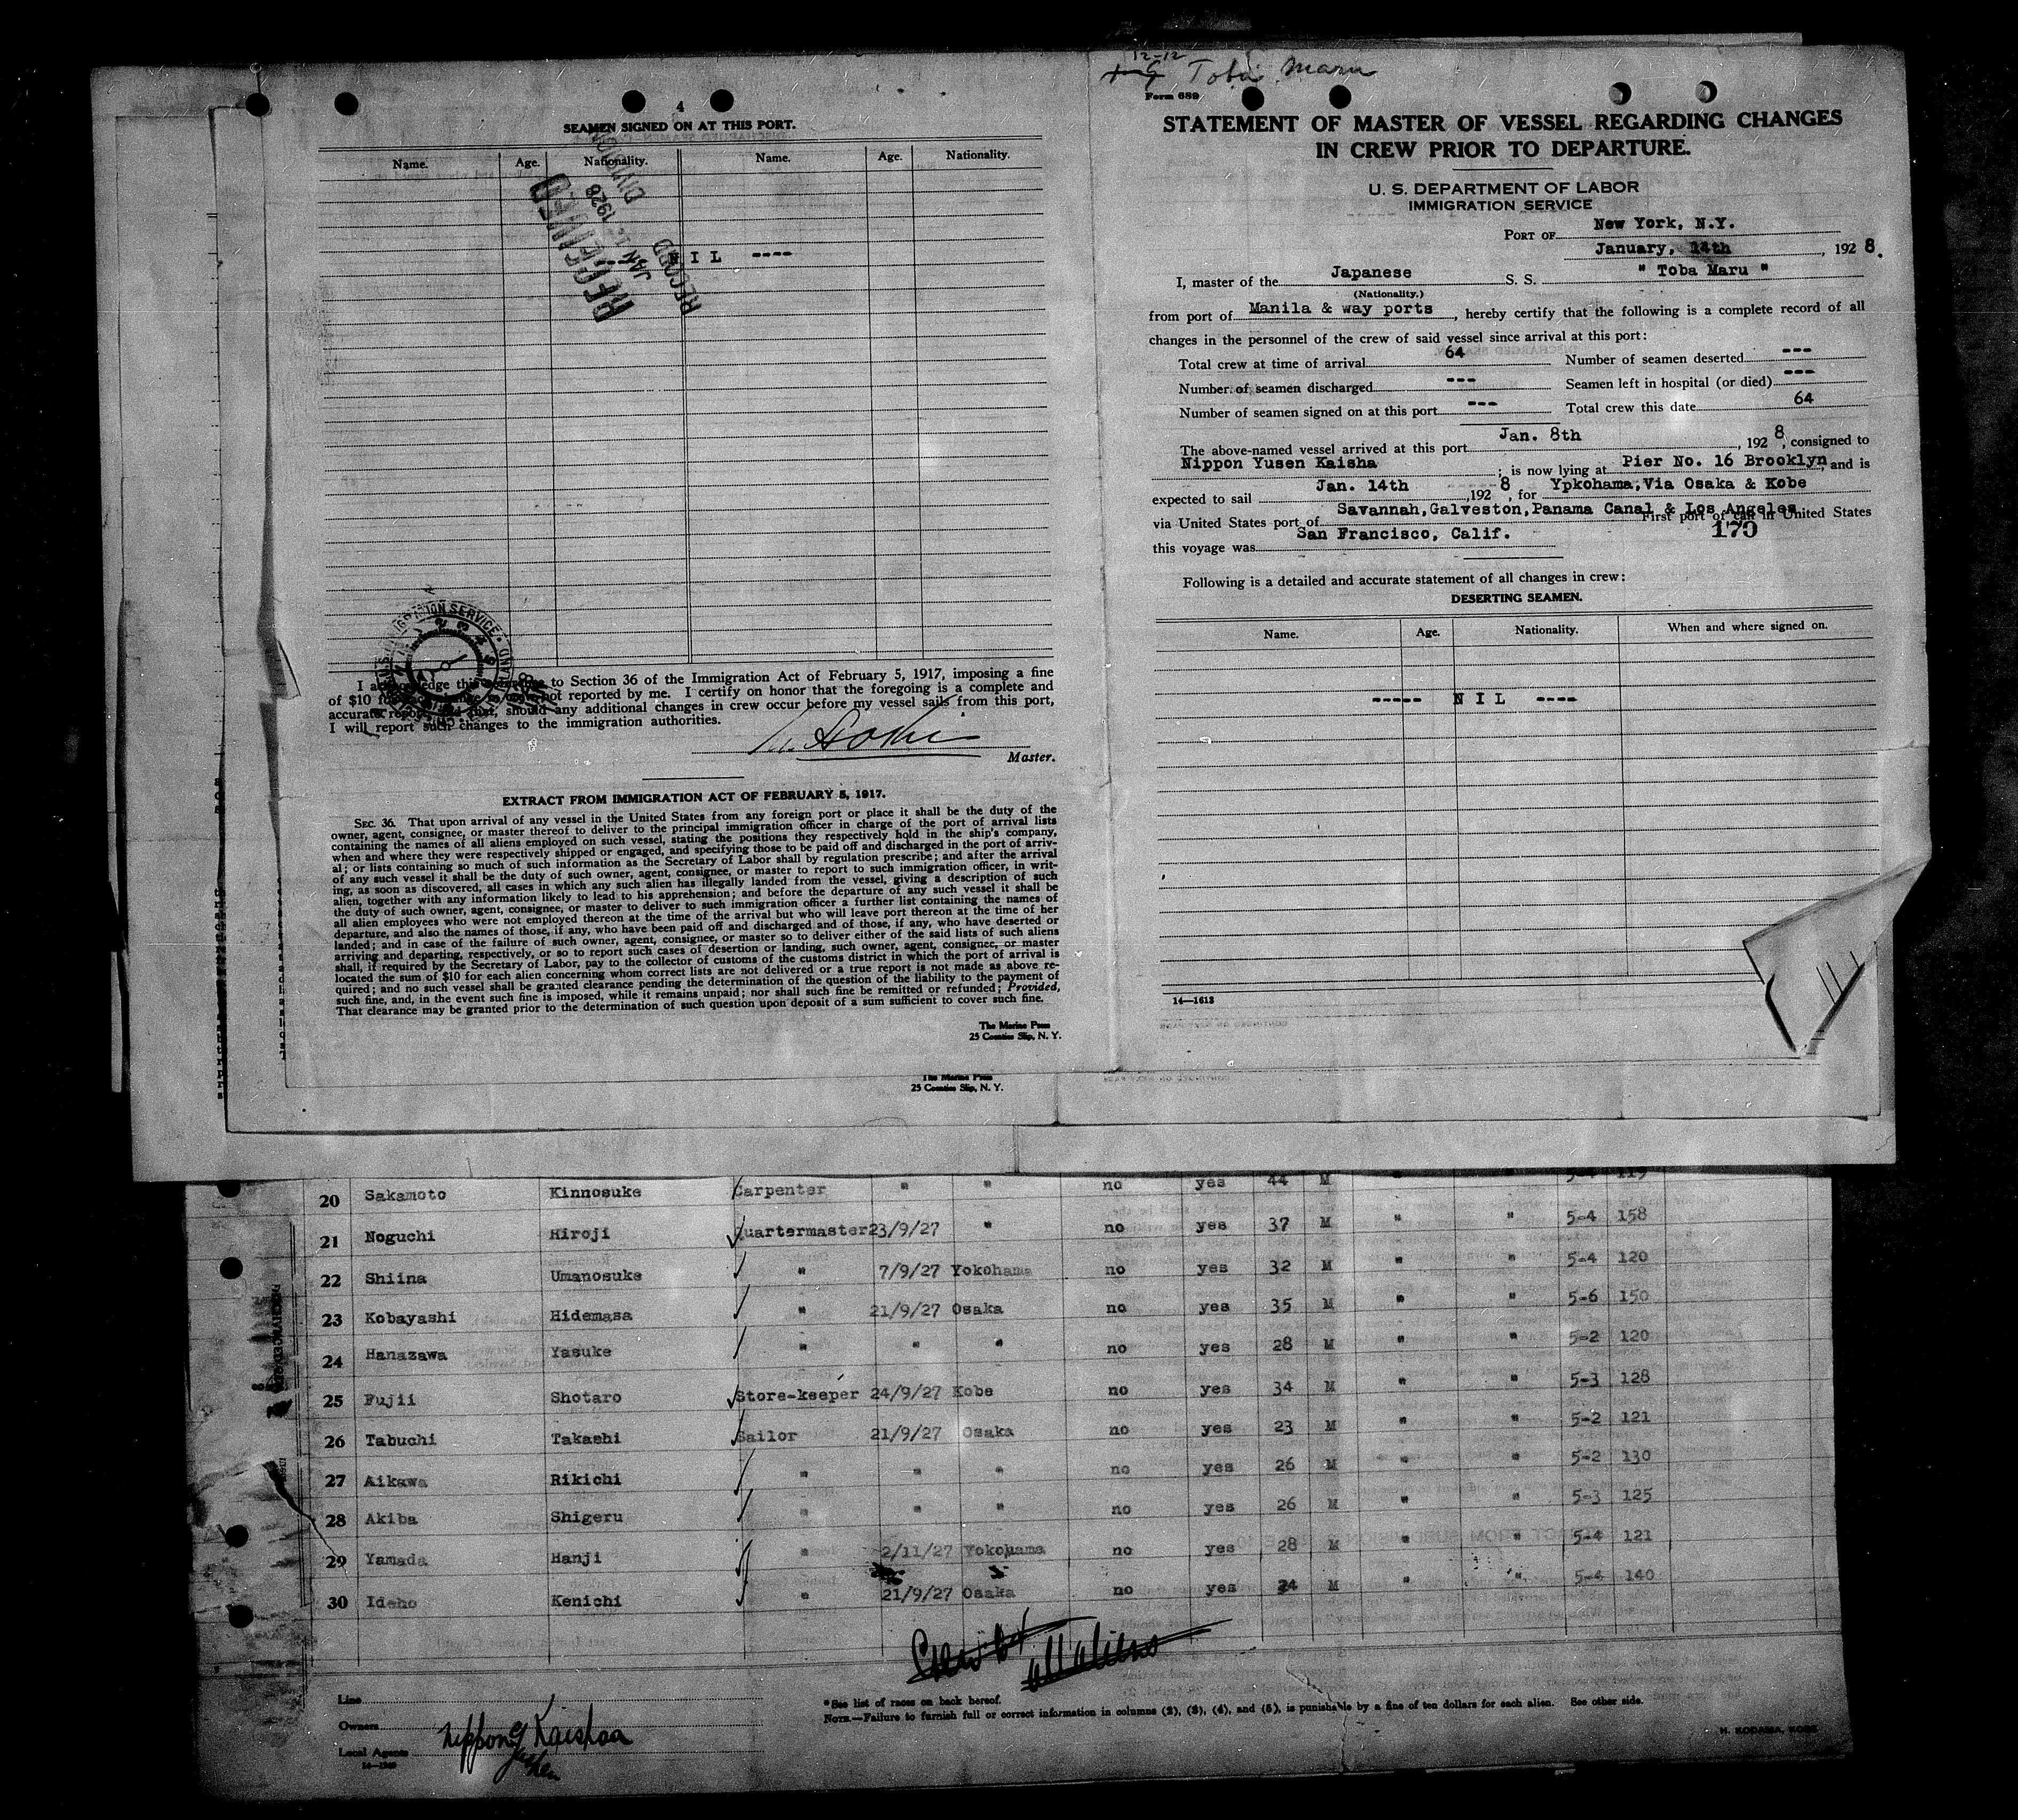 4
SEAMEN SIGNED ON AT THIS PORT.
Name. Age. Nationality. Name. Age. Nationality.
RECEIVED
JAN 1928
RECORD DIVISION
N I L ----
I acknowledge this to Section 36 of the Immigration Act of February 5, 1917, imposing a fine
of $10 for not reported by me. I certify on honor that the foregoing is a complete and
accurate report and that, should any additional changes in crew occur before my vessel sails from this port,
I will report such changes to the immigration authorities.
Master.
EXTRACT FROM IMMIGRATION ACT OF FEBRUARY 5, 1917.
SEC. 36. That upon arrival of any vessel in the United States from any foreign port or place it shall be the duty of the
owner, agent, consignee, or master thereof to deliver to the principal immigration officer in charge of the port of arrival lists
containing the names of all aliens employed on such vessel, stating the positions they respectively hold in the ship's company,
when and where they were respectively shipped or engaged, and specifying those to be paid off and discharged in the port of arriv-
al; or lists containing so much of such information as the Secretary of Labor shall by regulation prescribe; and after the arrival
of any such vessel it shall be the duty of such owner, agent, consignee, or master to report to such immigration officer, in writ-
ing, as soon as discovered, all cases in which any such alien has illegally landed from the vessel, giving a description of such
alien, together with any information likely to lead to his apprehension; and before the departure of any such vessel it shall be
the duty of such owner, agent, consignee, or master to deliver to such immigration officer a further list containing the names of
all alien employees who were not employed thereon at the time of the arrival but who will leave port thereon at the time of her
departure, and also the names of those, if any, who have been paid off and discharged and of those, if any, who have deserted or
landed; and in case of the failure of such owner, agent, consignee, or master so to deliver either of the said lists of such aliens
arriving and departing, respectively, or so to report such cases of desertion or landing, such owner, agent, consignee, or master
shall, if required by the Secretary of Labor, pay to the collector of customs of the customs district in which the port of arrival is
located the sum of $10 for each alien concerning whom correct lists are not delivered or a true report is not made as above re-
quired; and no such vessel shall be granted clearance pending the determination of the question of the liability to the payment of
such fine, and, in the event such fine is imposed, while it remains unpaid; nor shall such fine be remitted or refunded; Provided,
That clearance may be granted prior to the determination of such question upon deposit of a sum sufficient to cover such fine.
The Marine Press
25 Coenties Slip, N. Y.
The Marine Press
25 Coenties Slip, N. Y.
12-12
Toba Maru
Form 689
STATEMENT OF MASTER OF VESSEL REGARDING CHANGES
IN CREW PRIOR TO DEPARTURE.
U. S. DEPARTMENT OF LABOR
IMMIGRATION SERVICE
PORT OF New York, N.Y.
January, 14th, 1928.
I, master of the Japanese S. S. " Toba Maru "
(Nationality.)
from port of Manila & way ports, hereby certify that the following is a complete record of all
changes in the personnel of the crew of said vessel since arrival at this port:
Total crew at time of arrival 64 Number of seamen deserted ---
Number of seamen discharged --- Seamen left in hospital (or died) ---
Number of seamen signed on at this port --- Total crew this date 64
The above-named vessel arrived at this port Jan. 8th, 1928, consigned to
Nippon Yusen Kaisha; is now lying at Pier No. 16 Brooklyn, and is
expected to sail Jan. 14th, 1928, for Ypkohama,Via Osaka & Kobe
via United States port of Savannah,Galveston,Panama Canal & Los Angeles First port of call in United States
this voyage was San Francisco, Calif. 179
Following is a detailed and accurate statement of all changes in crew:
DESERTING SEAMEN.
Name. Age. Nationality. When and where signed on.
----- N I L ----
14—1613
20 Sakamoto Kinnosuke Carpenter " " no yes 44 M " " 5-4 119
21 Noguchi Hiroji Quartermaster 23/9/27 " no yes 37 M " " 5-4 158
22 Shiina Umanosuke " 7/9/27 Yokohama no yes 32 M " " 5-4 120
23 Kobayashi Hidemasa " 21/9/27 Osaka no yes 35 M " " 5-6 150
24 Hanazawa Yasuke " " " no yes 28 M " " 5-2 120
25 Fujii Shotaro Store-keeper 24/9/27 Kobe no yes 34 M " " 5-3 128
26 Tabuchi Takashi Sailor 21/9/27 Osaka no yes 23 M " " 5-2 121
27 Aikawa Rikichi " " " no yes 26 M " " 5-2 130
28 Akiba Shigeru " " " no yes 26 M " " 5-3 125
29 Yamada Hanji " 2/11/27 Yokohama no yes 28 M " " 5-4 121
30 Ideho Kenichi " 21/9/27 Osaka no yes 24 M " " 5-4 140
Crew list all aliens
*See list of races on back hereof.
NOTE.—Failure to furnish full or correct information in columns (2), (3), (4), and (5), is punishable by a fine of ten dollars for each alien. See other side.
Line
Owners
Local Agents Nippon Yusen Kaisha
H. KODAMA, KOBE